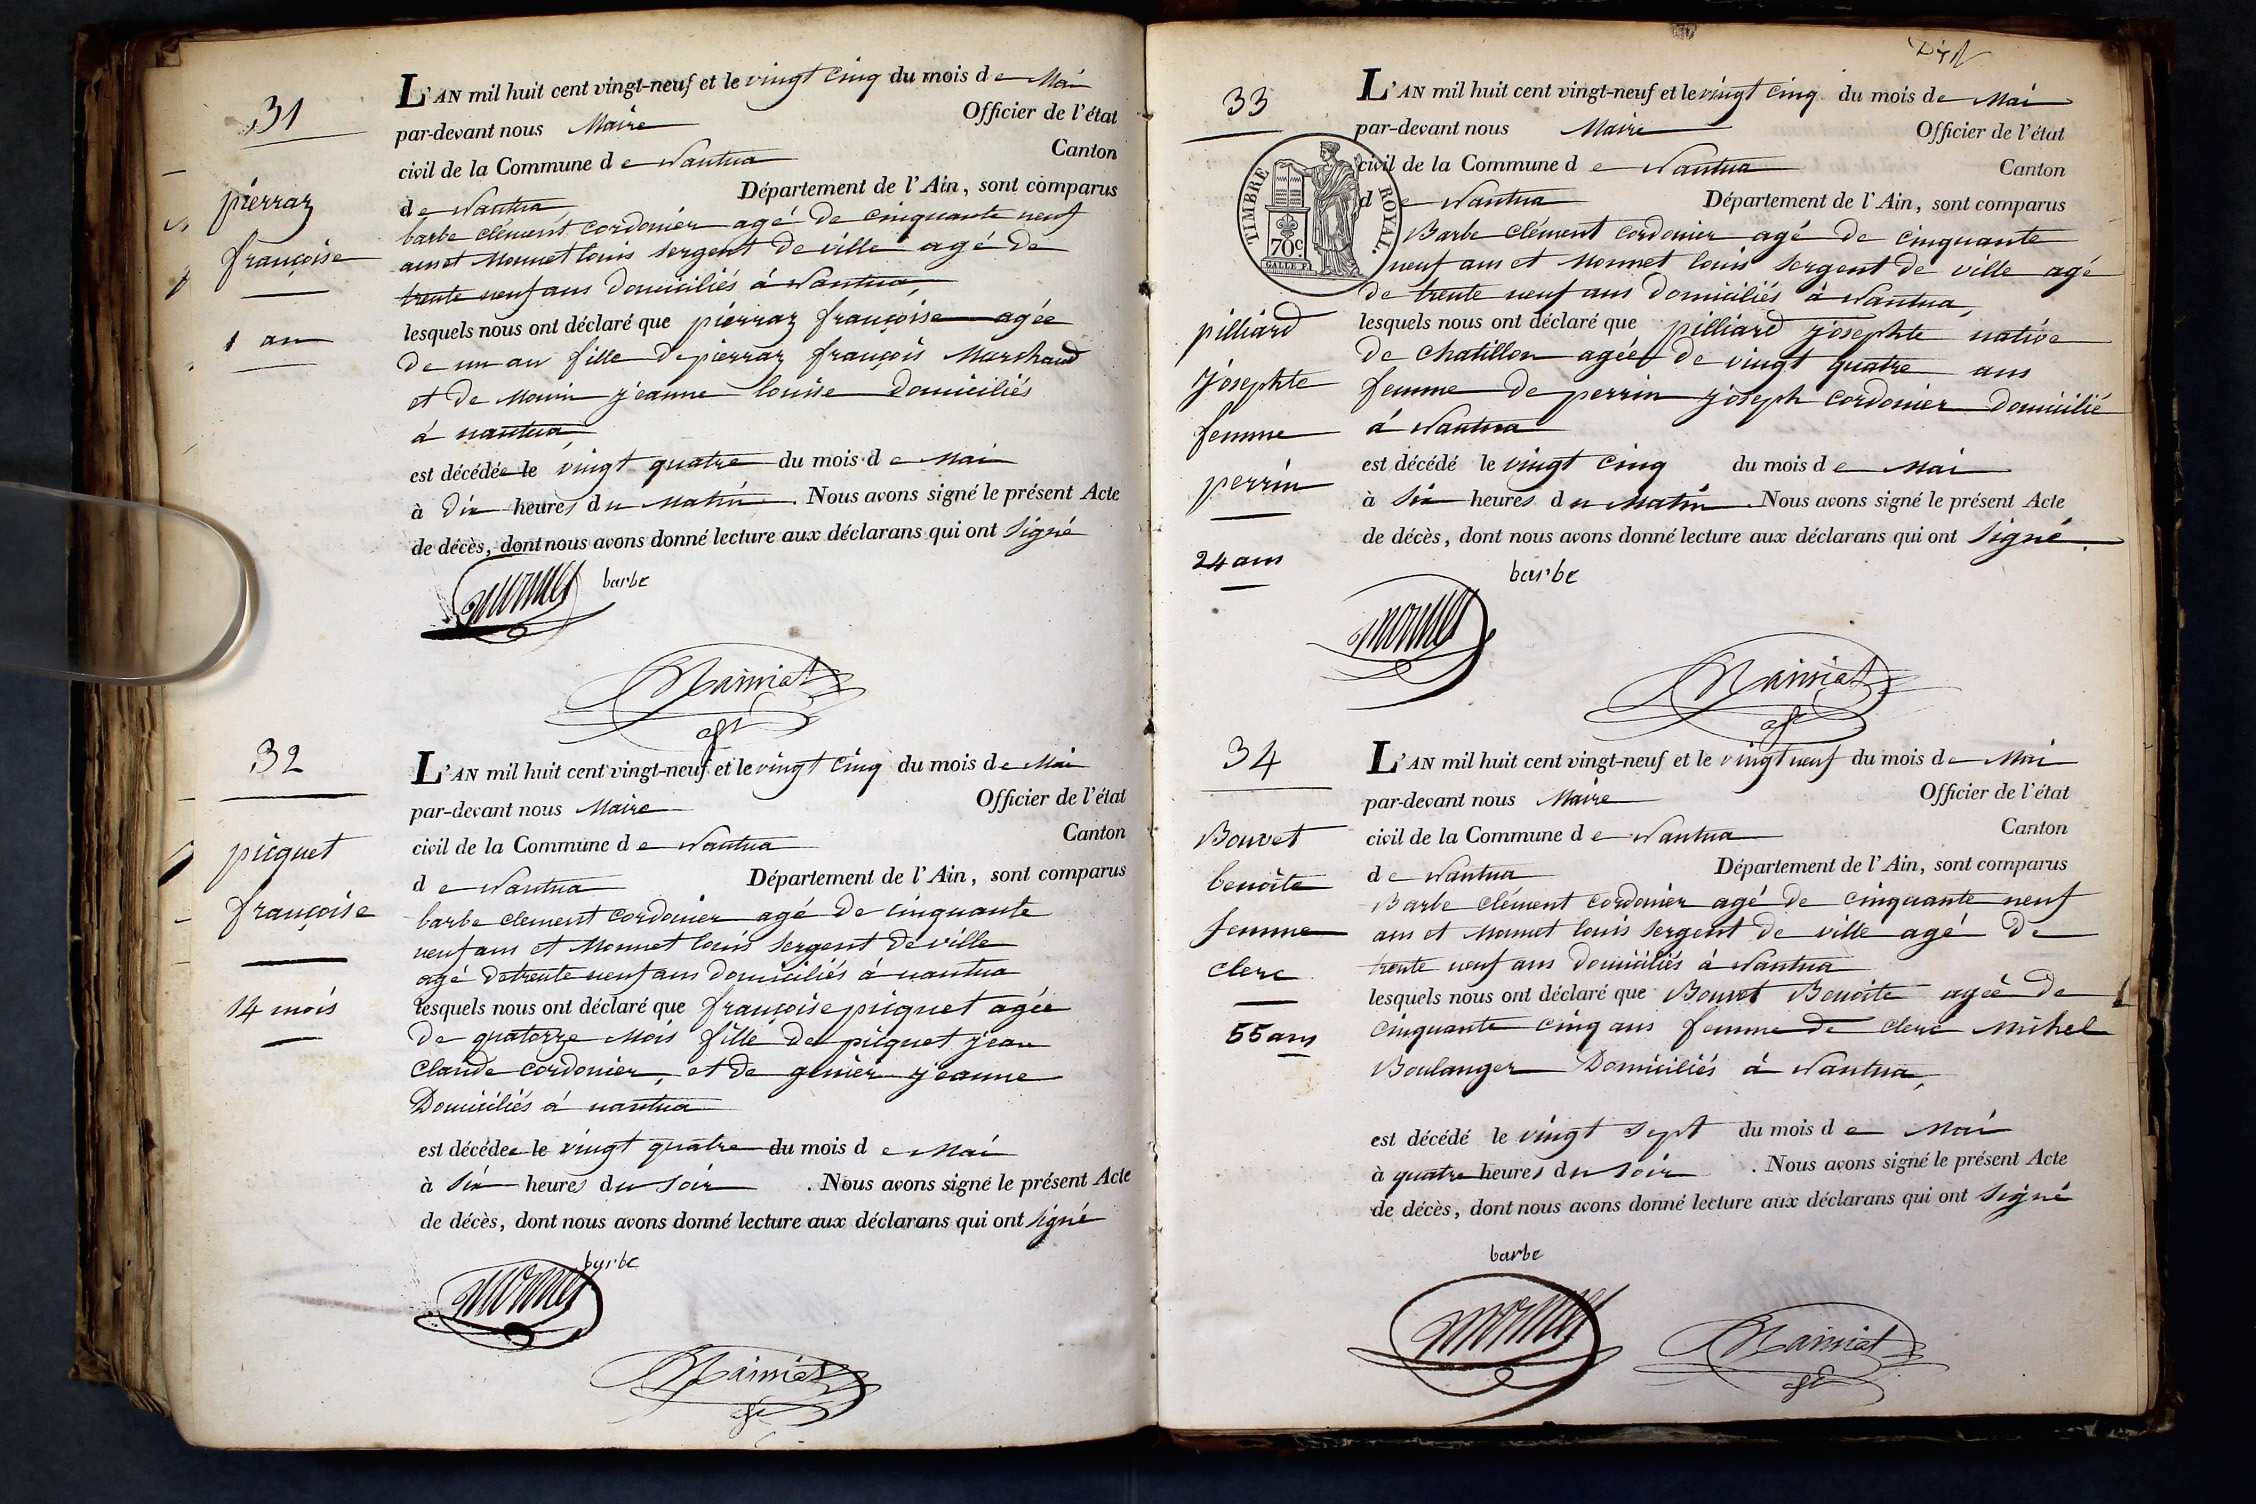 31
pierraz
françoise
1 an
L'AN mil huit cent vingt-neuf et le vingt cinq du mois de Mai
par-devant nous Maire Officier de l'état
civil de la Commune de Nantua Canton
de Nantua Département de l'Ain, sont comparus
barbe clément cordonier agé de cinquante neuf
ans et Monnet louis sergent de ville agé de
trente neuf ans domiciliés à Nantua,
lesquels nous ont déclaré que pierraz françoise agée
de un an fille de pierraz françois Marchand
et de jeanne louise Domiciliés
à nantua
est décédée le vingt quatre du mois de Mai
à dix heures du Matin. Nous avons signé le présent Acte
de décès, dont nous avons donné lecture aux déclarans qui ont signé
monnet barbe
32
picquet
françoise
14 mois
L'AN mil huit cent vingt-neuf et le vingt cinq du mois de Mai
par-devant nous Maire Officier de l'état
civil de la Commune de Nantua Canton
de Nantua Département de l'Ain, sont comparus
barbe clement cordonier agé de cinquante
neuf ans et Monnet louis sergent de ville
agé de trente neuf ans domiciliés à nantua
lesquels nous ont déclaré que françoise picquet agée
de quatorze Mois fille de picquet jean
claude cordonier, et de jeanne
Domiciliés à nantua
est décédée le vingt quatre du mois de Mai
à six heures du soir. Nous avons signé le présent Acte
de décès, dont nous avons donné lecture aux déclarans qui ont signé
barbe
monnet
33
pilliard
josephte
femme
perrin
24 ans
TIMBRE ROYAL.
70c
L'AN mil huit cent vingt-neuf et le vingt cinq du mois de Mai
par-devant nous Maire Officier de l'état
civil de la Commune de Nantua Canton
de Nantua Département de l'Ain, sont comparus
Barbe clément cordonier agé de cinquante
neuf ans et Monnet louis sergent de ville agé
de trente neuf ans domiciliés à Nantua,
lesquels nous ont déclaré que pilliard josephte native
de chatillon agée de vingt quatre ans
femme de perrin joseph cordonier domicilié
à Nantua
est décédé le vingt cinq du mois de Mai
à six heures du Matin. Nous avons signé le présent Acte
de décès, dont nous avons donné lecture aux déclarans qui ont signé.
barbe
monnet
34
Bouvet
benoite
femme
clerc
55 ans
L'AN mil huit cent vingt-neuf et le vingt neuf du mois de Mai
par-devant nous Maire Officier de l'état
civil de la Commune de Nantua Canton
de Nantua Département de l'Ain, sont comparus
Barbe clément cordonier agé de cinquante neuf
ans et Monnet louis sergent de ville agé de
trente neuf ans domiciliés à Nantua
lesquels nous ont déclaré que Bouvet Benoite agée de
cinquante cinq ans femme de clerc Michel
Boulanger Domiciliés à Nantua,
est décédé le vingt sept du mois de Mai
à quatre heures du soir. Nous avons signé le présent Acte
de décès, dont nous avons donné lecture aux déclarans qui ont signé
barbe
monnet